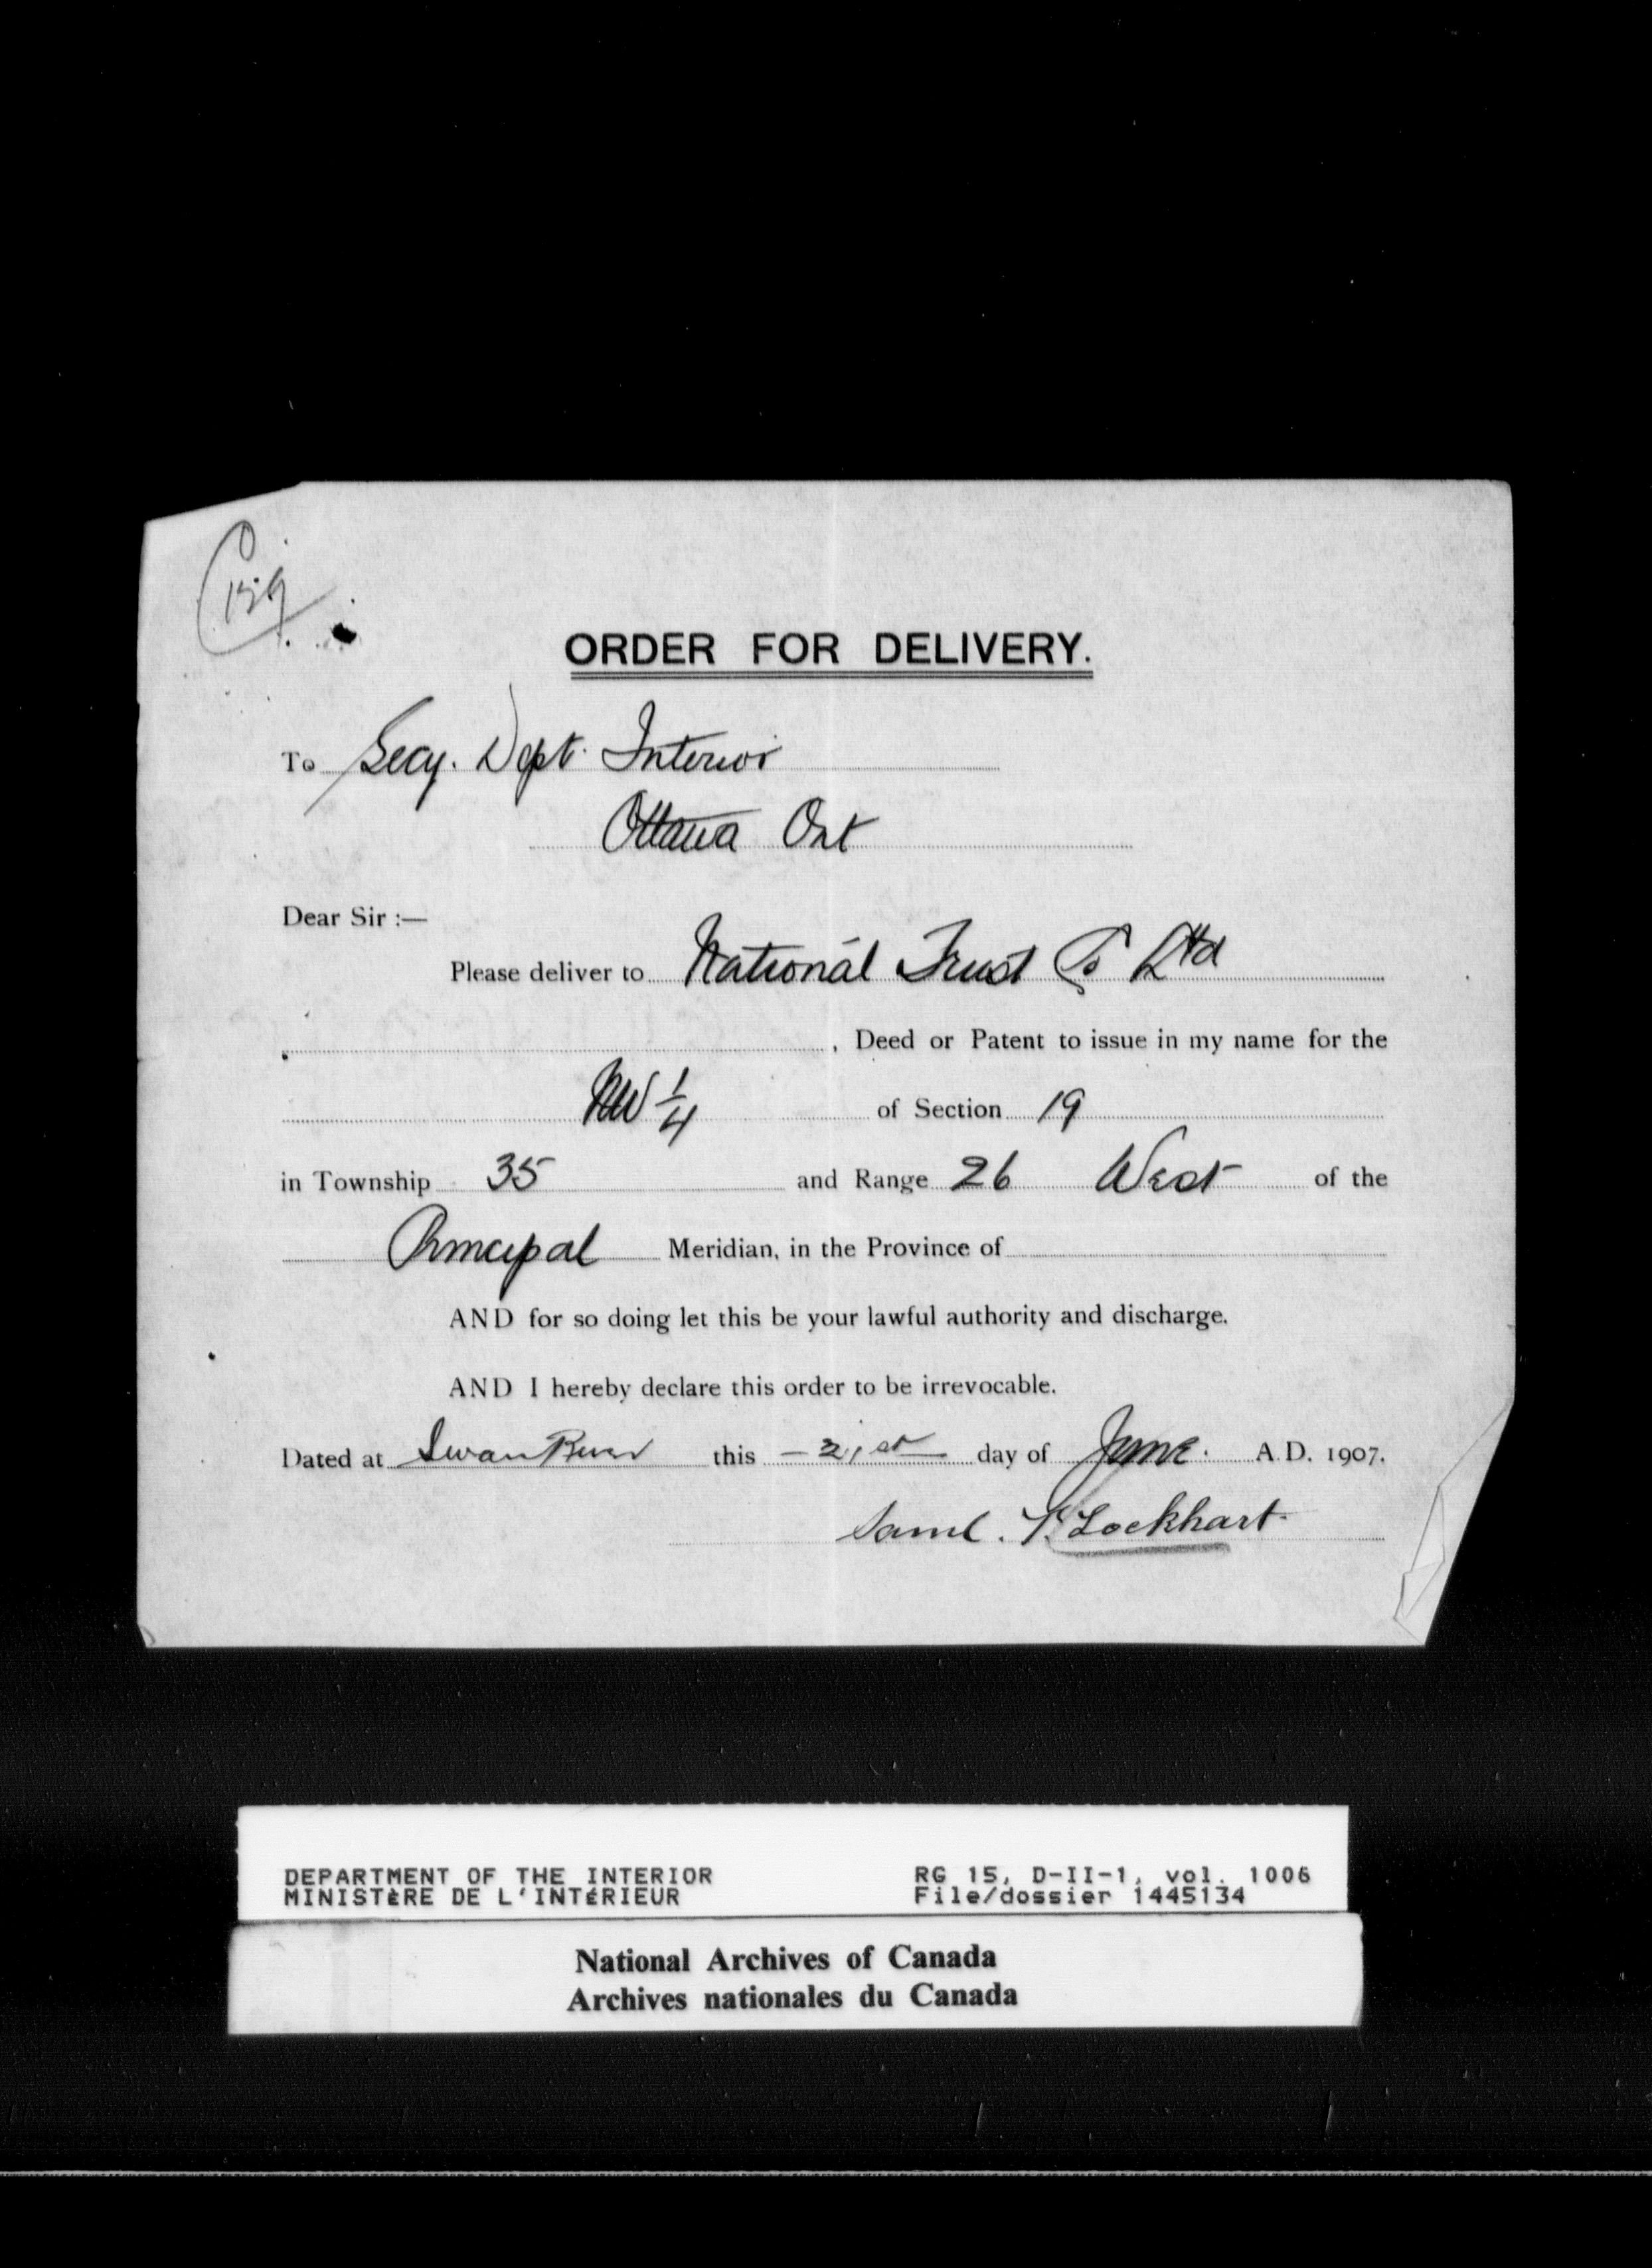 ORDER FOR DELIVERY.
To Secy. Dept. Interior
Ottawa Ont
Dear Sir :—
Please deliver to National Trust Co Ltd
, Deed or Patent to issue in my name for the
NW 1/4 of Section 19
in Township 35 and Range 26 West of the
Principal Meridian, in the Province of
AND for so doing let this be your lawful authority and discharge.
AND I hereby declare this order to be irrevocable.
Dated at Swan River this – 21st day of June. A.D. 1907.
Saml. T. Lockhart.
DEPARTMENT OF THE INTERIOR RG 15, D-II-1, vol. 1006
MINISTÈRE DE L'INTÉRIEUR File/dossier 1445134
National Archives of Canada
Archives nationales du Canada